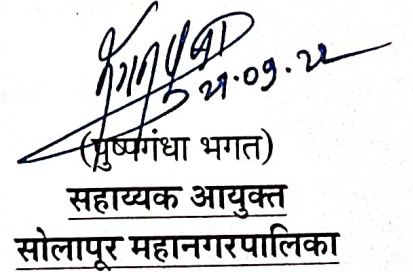 २१.०९.२२
(पुष्पगंधा भगत)
सहाय्यक आयुक्त
सोलापूर महानगरपालिका